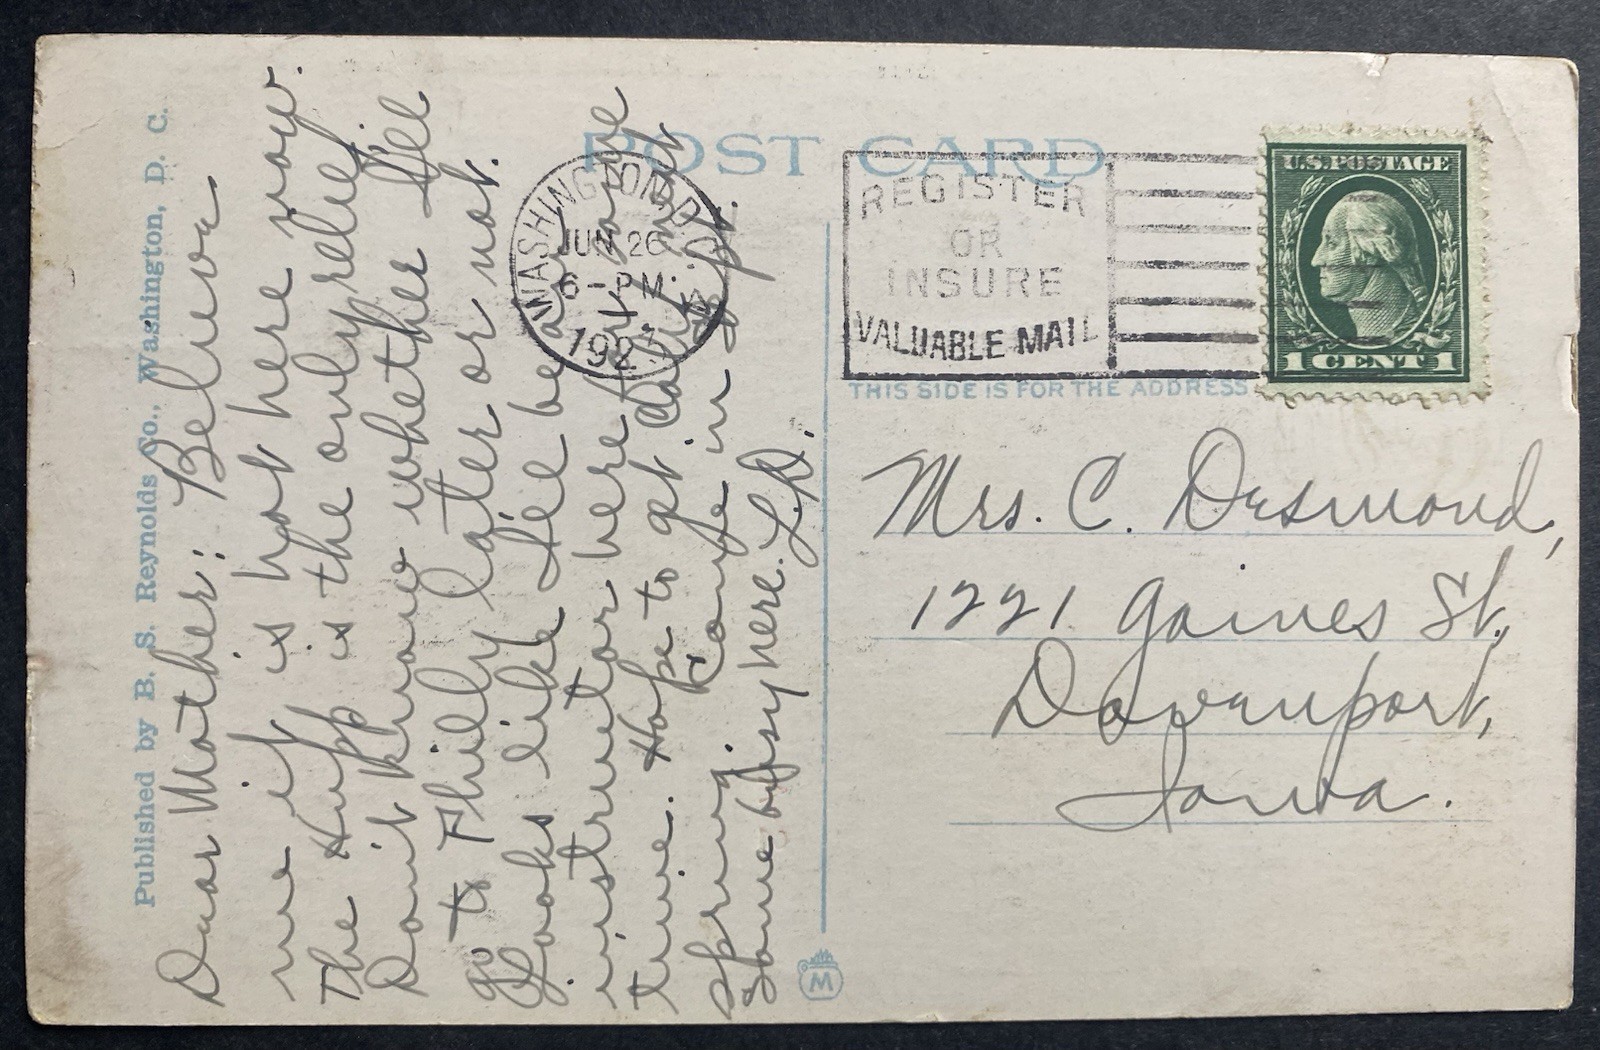 Published by B. S. Reynolds Co., Washington, D. C.
Dear Mother: Believe
me it is hot here now.
The Hupp is the only relief.
Don't know whether I'll
go to Philly later or not.
Looks like I'll be an
instructor here for some
time. Hope to get
spring. Come in Sept.
Some busy here. L.D.
POST CARD
WASHINGTON, D.C.
JUN 26
6-PM
192
REGISTER
OR
INSURE
VALUABLE MAIL
U.S. POSTAGE
1 CENT 1
THIS SIDE IS FOR THE ADDRESS
Mrs. C. Desmond,
1221 Gaines St.,
Davenport,
Iowa.
M